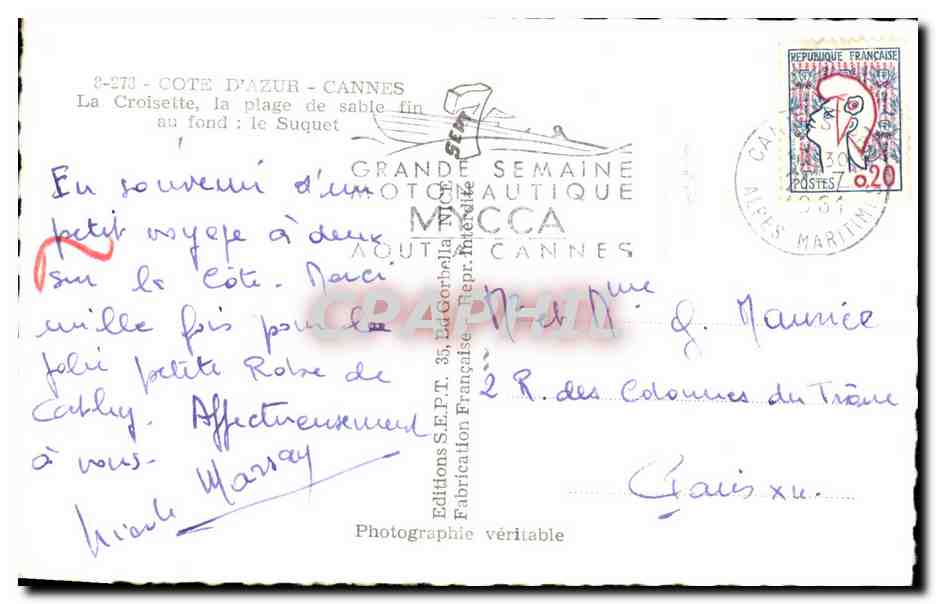 3-273 - COTE D'AZUR - CANNES
La Croisette, la plage de sable fin
au fond : le Suquet
SEM
GRANDE SEMAINE
MOTONAUTIQUE
MYCCA
AOUT A CANNES
REPUBLIQUE FRANÇAISE
POSTES 0,20
30
7
1961
ALPES MARITIMES
En souvenir d'un
petit voyage à deux
sur la Côte. Merci
mille fois pour la
jolie petite Robe de
Cathy. Affectueusement
à vous.
Nicole Marsay
Mr et Mme J. Maurice
2 R. des Colonnes du Trône
Paris XII.
Editions S.E.P.T. 35, Bd Gorbella, NICE
Fabrication Française - Repr. Interdite
Photographie véritable
CPAPHIL